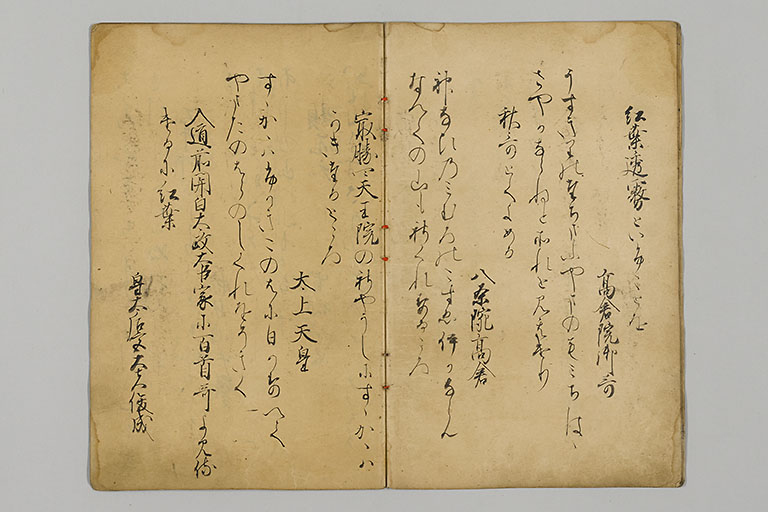 紅葉透霧といふことを
高倉院御哥
うすきりのたちまふやまのもみちはゝ
さやかならねとそれと見えけり
秋哥とてよめる
八条院高倉
神なひのみむろのこすゑ何かならん
なへての山もしくれするころ
最勝四天王院のしやうしにすゝかゝは
かきたるところ
太上天皇
すゝかゝはふかきこのはに日かすへて
やまたのはらのしくれをそきく
入道前関白太政大臣家に百首哥よみ侍
けるに紅葉
皇太后宮大夫俊成